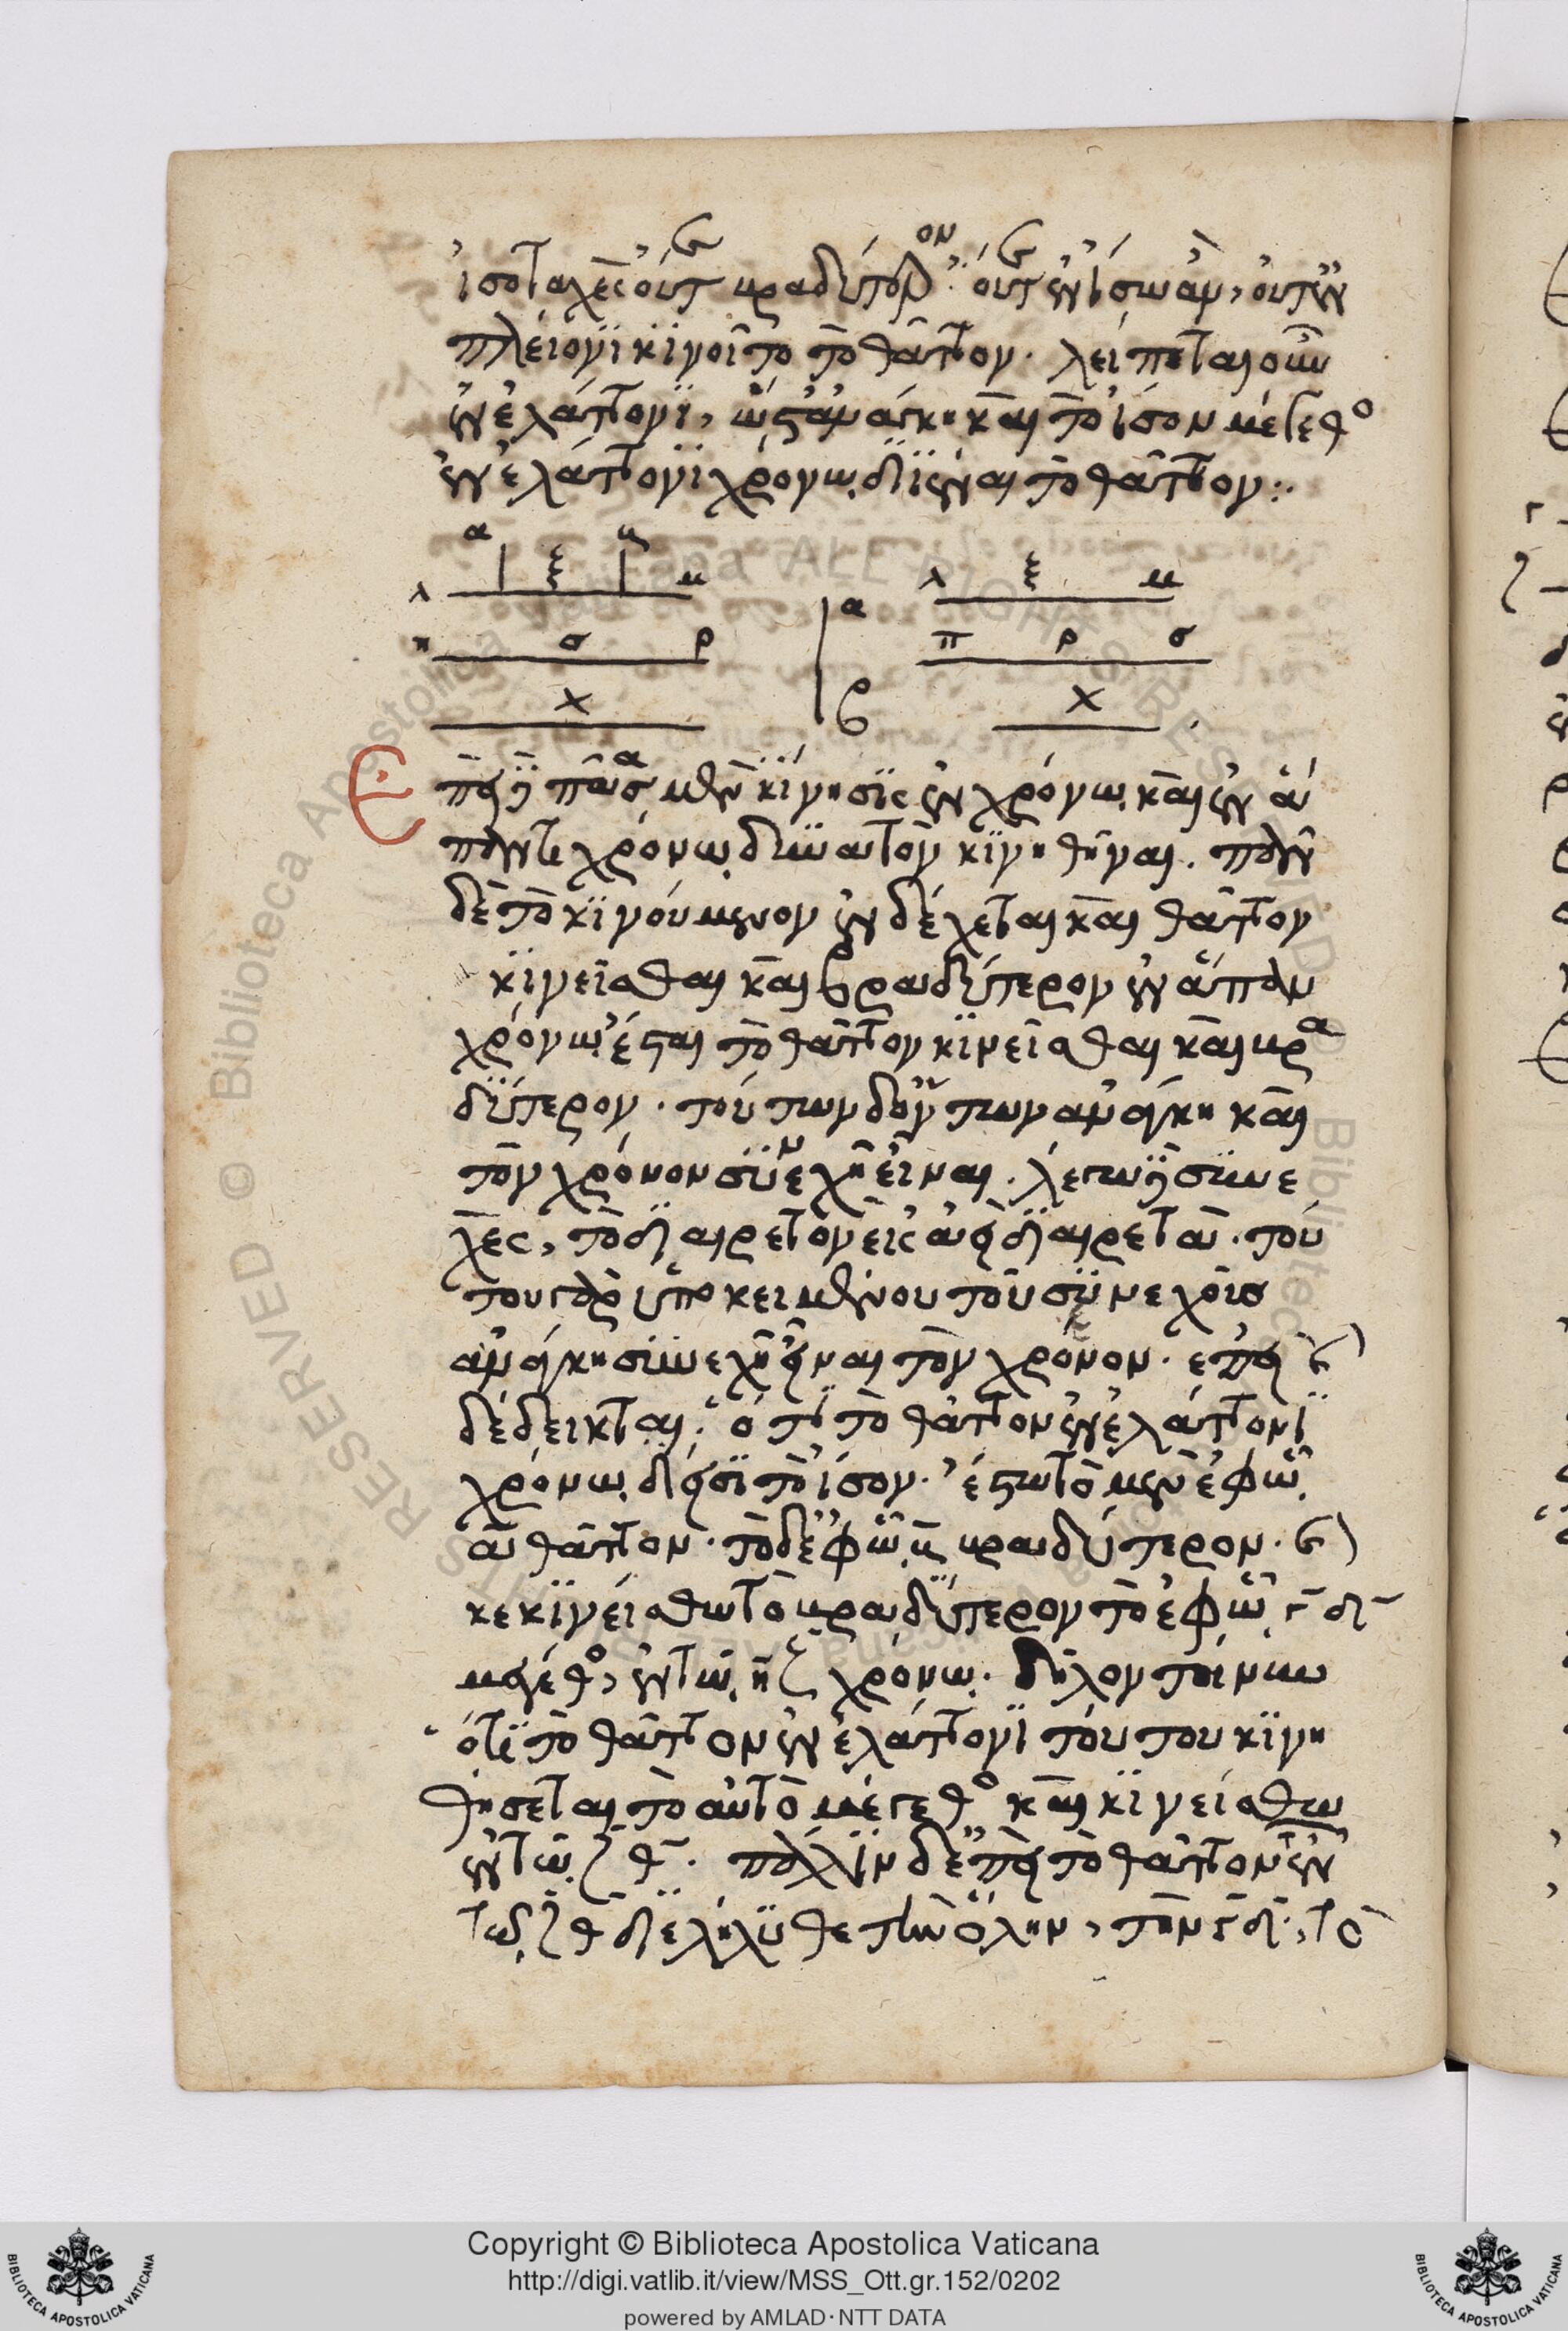 ἰσοταχὲς οὔτε βραδύτερον· οὔτ' ἐν ἴσω ἂν, οὔτ' ἐν
πλείονι κινοῖτο τὸ θᾶττον. λείπεται οὖν
ἐν ἐλάττονι, ὥστ' ἀνάγκη καὶ τὸ ἴσον μέγεθο
ἐν ἐλάττονι χρόνω διϊέναι τὸ θᾶττον:.
α β
λ ξ μ λ ξ μ
α
π σ ρ π ρ σ
χ β χ
Ἐπεὶ δὲ πᾶσα μὲν κίνησις ἐν χρόνω καὶ ἐν ἅ
παντι χρόνω δυνατὸν κινηθῆναι. πᾶν
δὲ τὸ κινούμενον ἐνδέχεται καὶ θᾶττον
κινεῖσθαι καὶ βραδύτερον ἐν ἅπαντι
χρόνω ἔσται τὸ θᾶττον κινεῖσθαι καὶ βρα
δύτερον. τούτων δ' ὄντων ἀνάγκη καὶ
τὸν χρόνον συνεχῆ εἶναι. λέγω δὲ συνε
χὲς, τὸ διαιρετὸν εἰς ἀεὶ διαιρετά. τού
του γὰρ ὑποκειμένου τοῦ συνεχοῦς
ἀνάγκη συνεχῆ εἶναι τὸν χρόνον. ἐπεὶ γὰρ
δέδεικται, ὅτι τὸ θᾶττον ἐν ἐλάττονι
χρόνω δίεισι τὸ ἴσον. ἔστω τὸ μὲν ἐφ' ᾧ
α θᾶττον. τὸ δ' ἐφ' ᾧ β βραδύτερον. καὶ
κεκινείσθω τὸ βραδύτερον τὸ ἐφ' ᾧ γδ
μέγεθο, ἐν τῷ ζη χρόνω. δῆλον τοίνυν
ὅτι τὸ θᾶττον ἐν ἐλάττονι τούτου κινη
θήσεται τὸ αὐτὸ μέγεθο καὶ κινείσθω
ἐν τῷ ζθ. πάλιν δ' ἐπεὶ τὸ θᾶττον ἐν
τῷ ζθ διελήλυθε τὴν ὅλην, τὴν γδ, τὸ
Copyright © Biblioteca Apostolica Vaticana
http://digi.vatlib.it/view/MSS_Ott.gr.152/0202
powered by AMLAD·NTT DATA